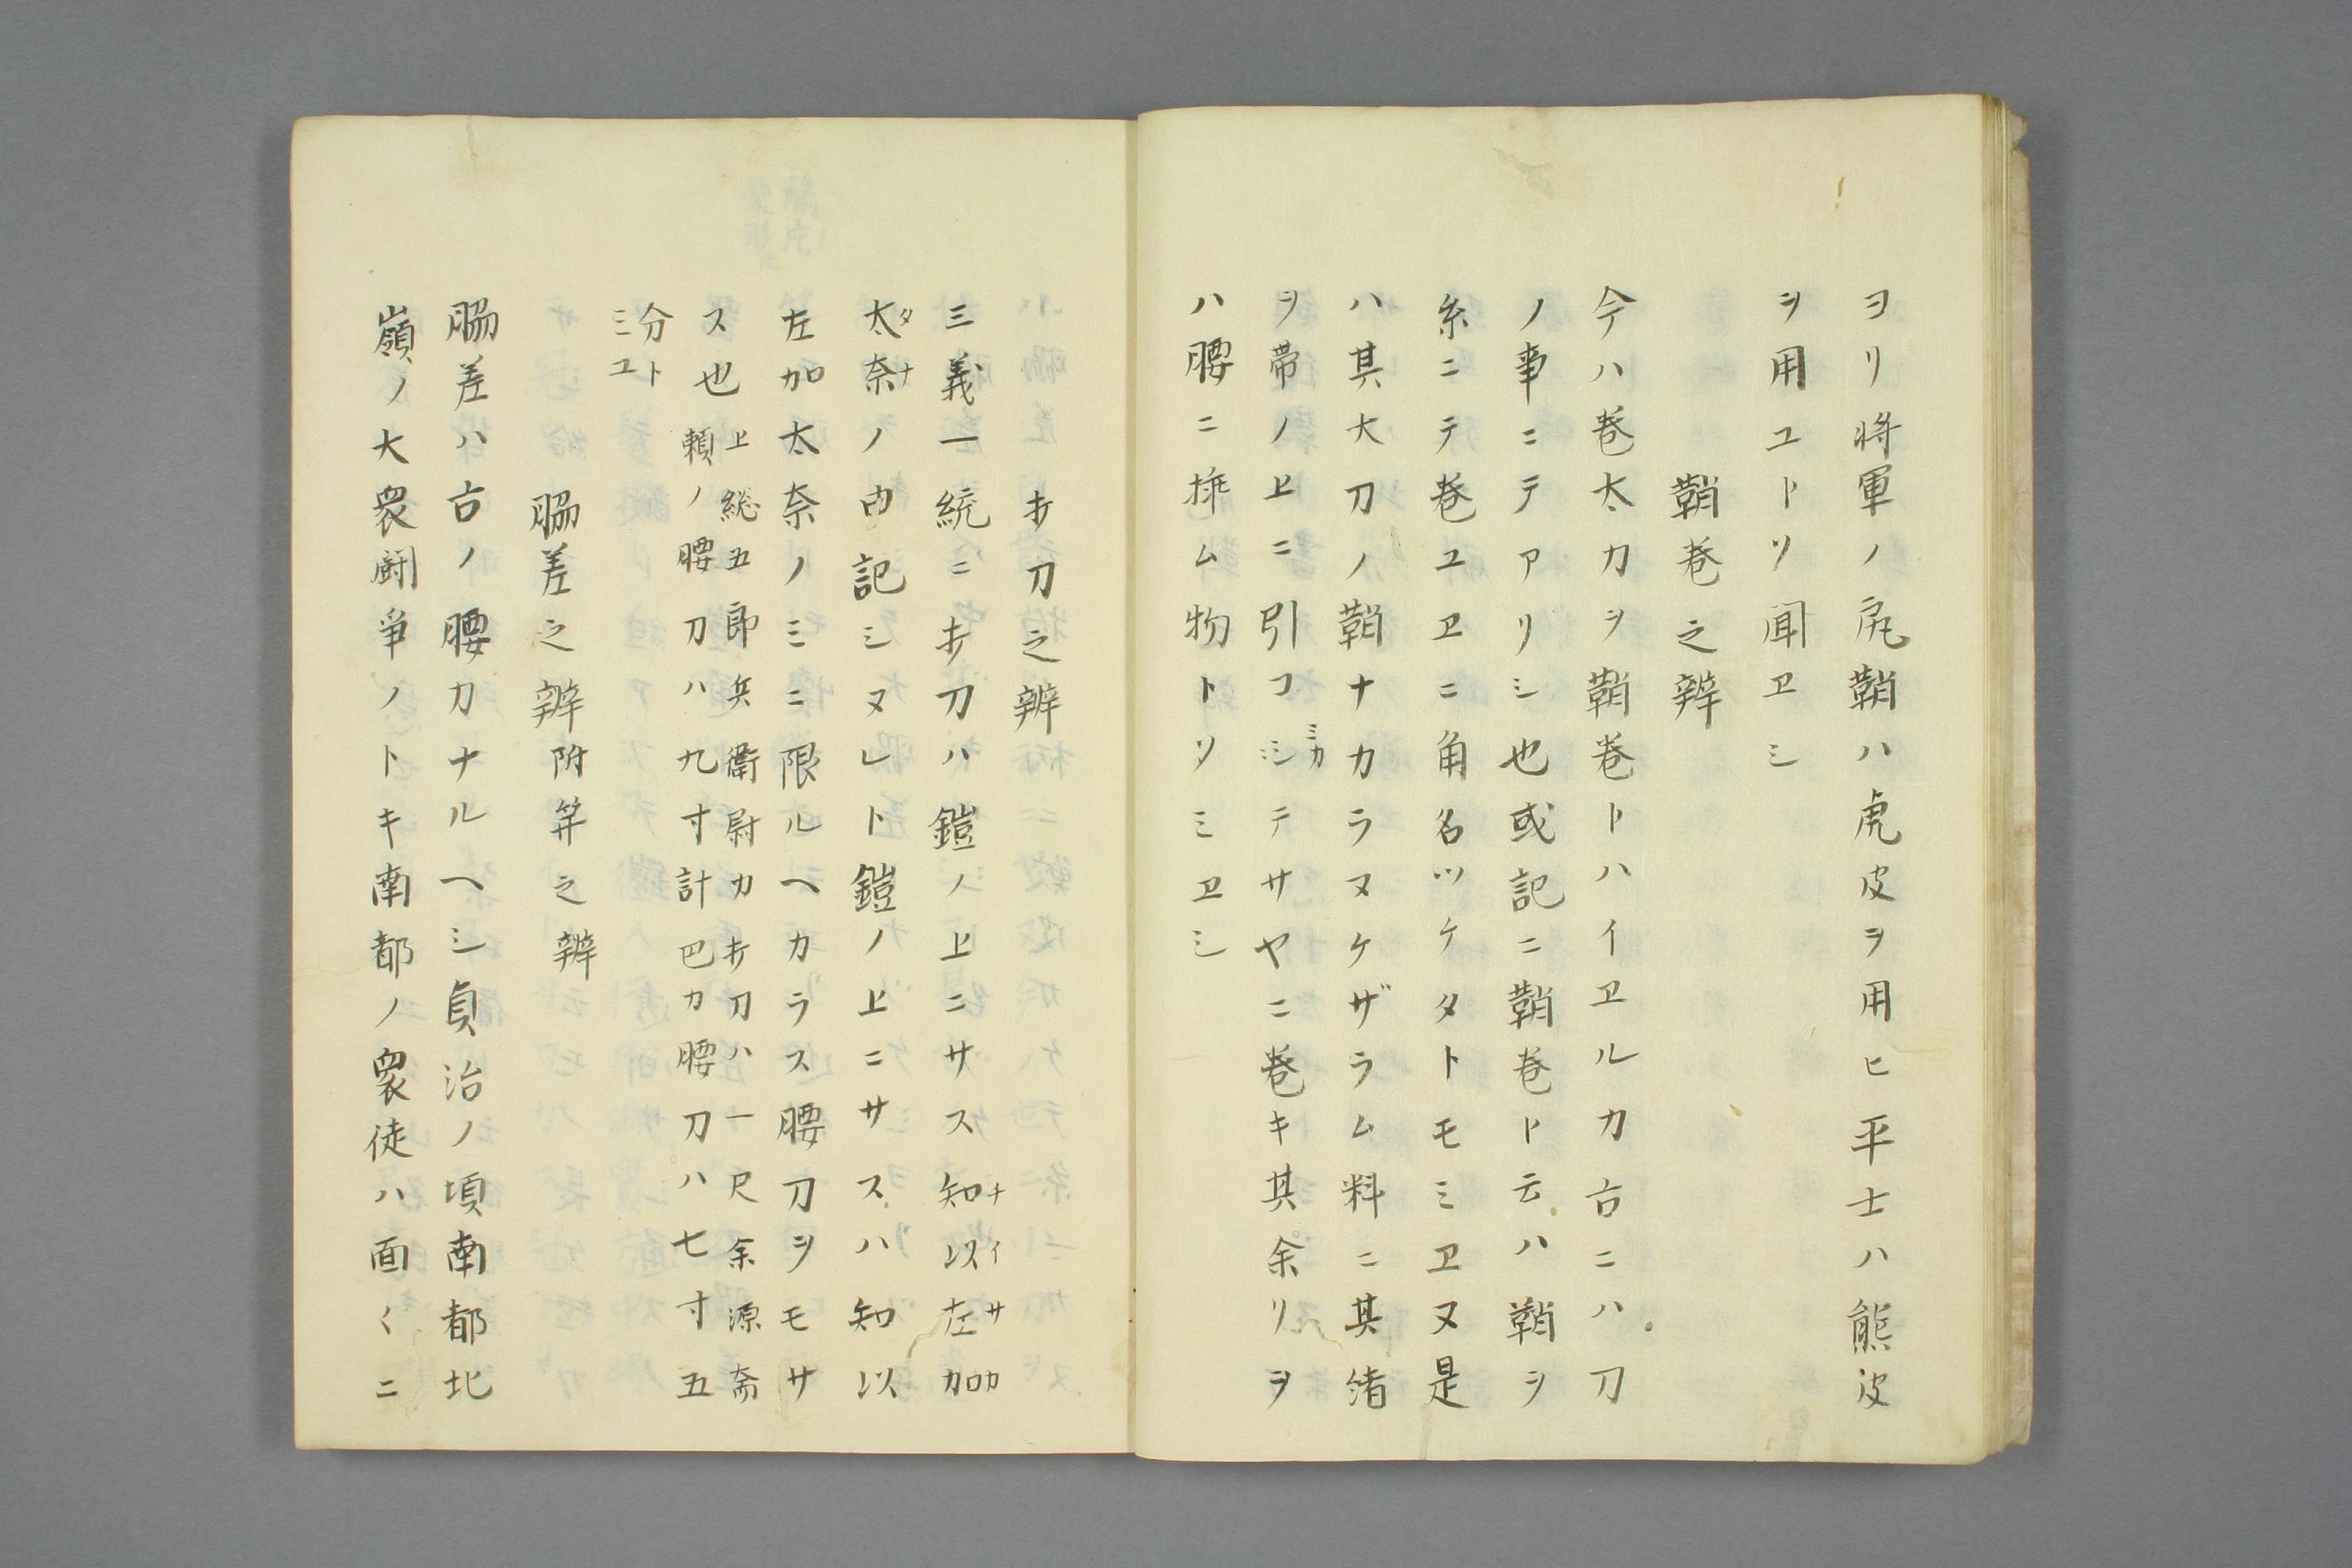 ヨリ将軍ノ尻鞘ハ虎皮ヲ用ヒ平士ハ熊皮
ヲ用ユトソ聞ヱシ
鞘巻之辨
今ハ巻太刀ヲ鞘巻トハイヱルカ古ニハ刀
ノ事ニテアリシ也或記ニ鞘巻ト云ハ鞘ヲ
糸ニテ巻ユヱニ角名ツケタトモミヱ又是
ハ其大刀ノ鞘ナカラヌケザラム料ニ其緒
ヲ帯ノ上ニ引コミシカテサヤニ巻キ其余リヲ
ハ腰ニ挿ム物トソミヱシ
刺刀之辨
三義一統ニ刺刀ハ鎧ノ上ニサス知チ以イ左サ加カ
太タ奈ナノ内記シヌレト鎧ノ上ニサスハ知以
左加太奈ノミニ限ルヘカラス腰刀ヲモサ
ス也上総五郎兵衛尉カ刺刀ハ一尺余源斎
頼ノ腰刀ハ九寸計巴カ腰刀ハ七寸五
分ト
ミユ
脇差之辨附笄之辨
脇差ハ古ノ腰刀ナルヘシ貞治ノ頃南都北
嶺ノ大衆闘争ノトキ南都ノ衆徒ハ面〱ニ